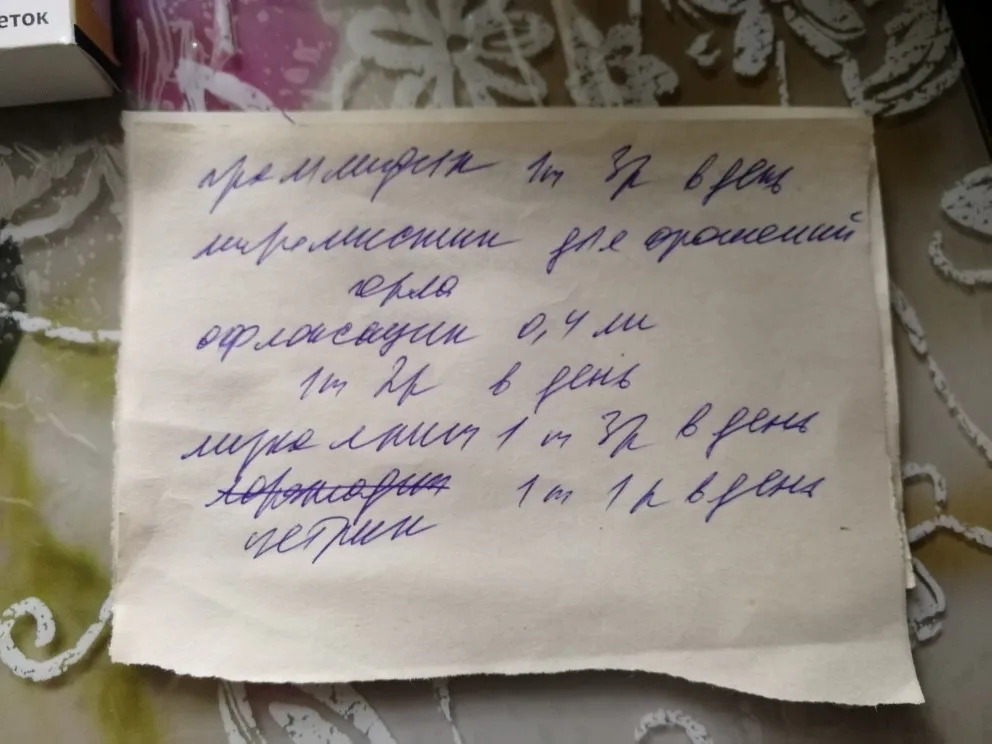 еток
граммидин 1т 3р в день
мирамистин для орошений
горла
офлоксацин 0,4 мл
1т 2р в день
1т 3р в день
лоратадин 1т 1р в день
цетрин